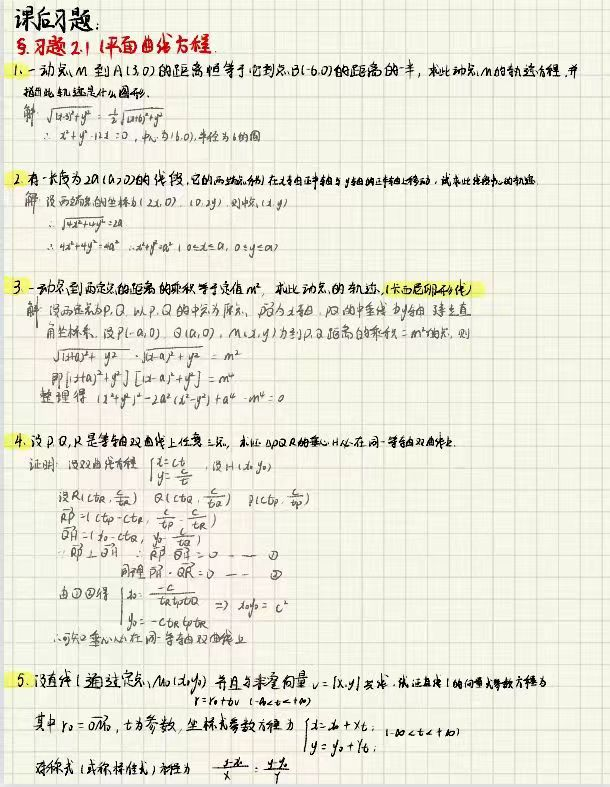 课后习题:
§.习题2.1 (平面曲线方程
1.一动点M到A(3,0)的距离恒等于它到点B(-6,0)的距离的一半,求此动点M的轨迹方程,并
指出此轨迹是什么图形.
解 √(x-3)²+y² = 1/2 √(x+6)²+y²
∴ x²+y²-12x=0,中心为(6,0),半径为6的圆
2.有一长度为2a(a>0)的线段,它的两端点分别在x轴正半轴与y轴的正半轴上移动,试求此线段中心的轨迹
解 设两端点的坐标为(2x,0),(0,2y),则中点(x,y)
∴ √4x²+4y² = 2a
∴ 4x²+4y²=4a² ∴x²+y²=a² (0≤x≤a, 0≤y≤a)
3.一动点到两定点的距离的乘积等于定值m²,求此动点的轨迹.(卡西尼卵形线)
解 设两定点为P,Q,以P,Q的中点为原点,PQ为x轴,PQ的中垂线为y轴建立直
角坐标系.设P(-a,0),Q(a,0),M(x,y)为到P,Q距离的乘积=m²的点,则
√(x+a)²+y² · √(x-a)²+y² = m²
即[(x+a)²+y²][(x-a)²+y²]=m⁴
整理得 (x²+y²)²-2a²(x²-y²)+a⁴-m⁴=0
4.设P,Q,R是等轴双曲线上任意三点,求证△PQR的垂心H必在同一等轴双曲线上.
证明:设双曲线方程 { x=ct
y=c/t ,设H(x₀,y₀)
设R(ctR, c/tR) Q(ctQ, c/tQ) P(ctP, c/tP)
RP=(ctP-ctR, c/tP-c/tR)
QH=(x₀-ctQ, y₀-c/tQ)
∵RP⊥QH ∴RP·QH=0 — — ①
同理PH·QR=0 — — ②
由①②得 { x₀=-c/tRtPtQ
⇒ x₀y₀=c²
y₀=-ctRtPtQ
∴可知垂心必在同一等轴双曲线上
5.设直线l通过定点M₀(x₀,y₀)并且与非零向量v={X,Y}共线,试证直线l的向量式参数方程为
r=r₀+tv (-∞<t<+∞)
其中r₀=OM₀,t为参数,坐标式参数方程为 { x=x₀+Xt;
(-∞<t<+∞)
y=y₀+Yt;
对称式(或称标准式)方程为 x-x₀/X = y-y₀/Y